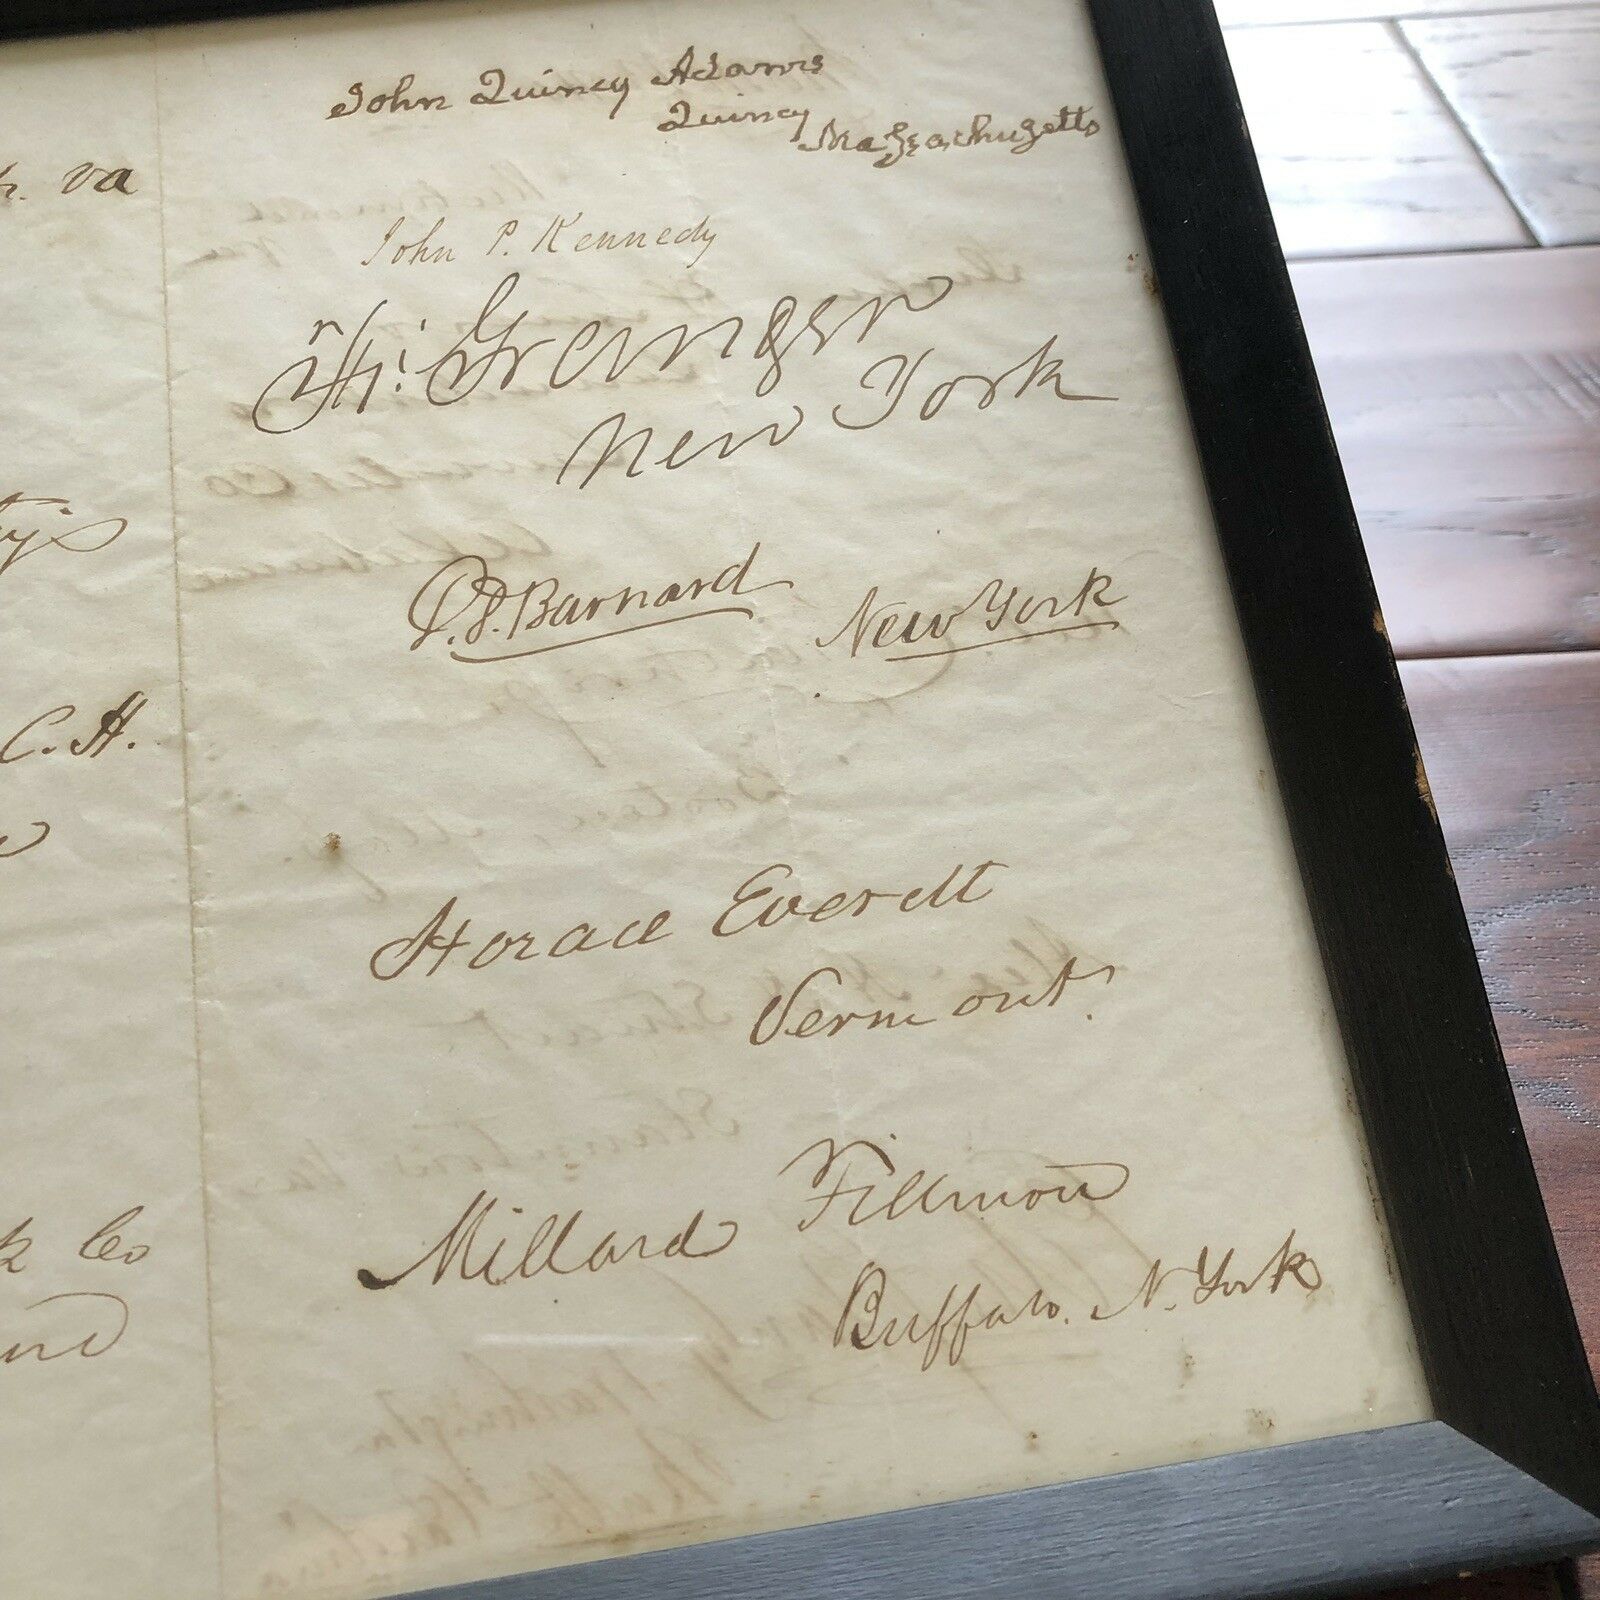 John Quincy Adams
Quincy Massachusetts
Va
John P. Kennedy
Fr: Granger
New York
D. D. Barnard New York
C. H.
Horace Everett
Vermont
Millard Fillmore
Co
Buffalo. N. York